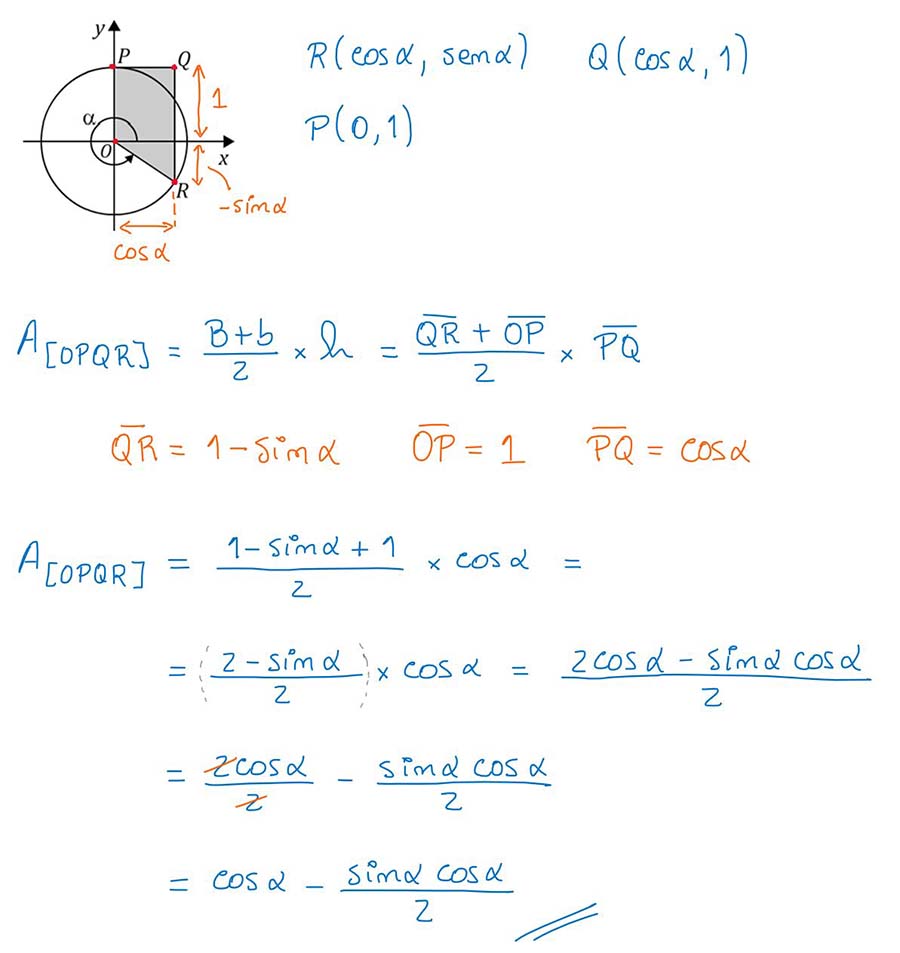 y
P Q
R(cosα, senα) Q(cosα, 1)
1
P(0, 1)
α
O x
R
-sinα
cosα
A[OPQR] = B+b/2 × h = (Q̅R̅ + O̅P̅)/2 × P̅Q̅
Q̅R̅ = 1 - sinα O̅P̅ = 1 P̅Q̅ = cosα
A[OPQR] = (1 - sinα + 1)/2 × cosα =
= (2 - sinα / 2) × cosα = (2cosα - sinα cosα)/2
= 2cosα/2 - sinα cosα/2
= cosα - sinα cosα/2